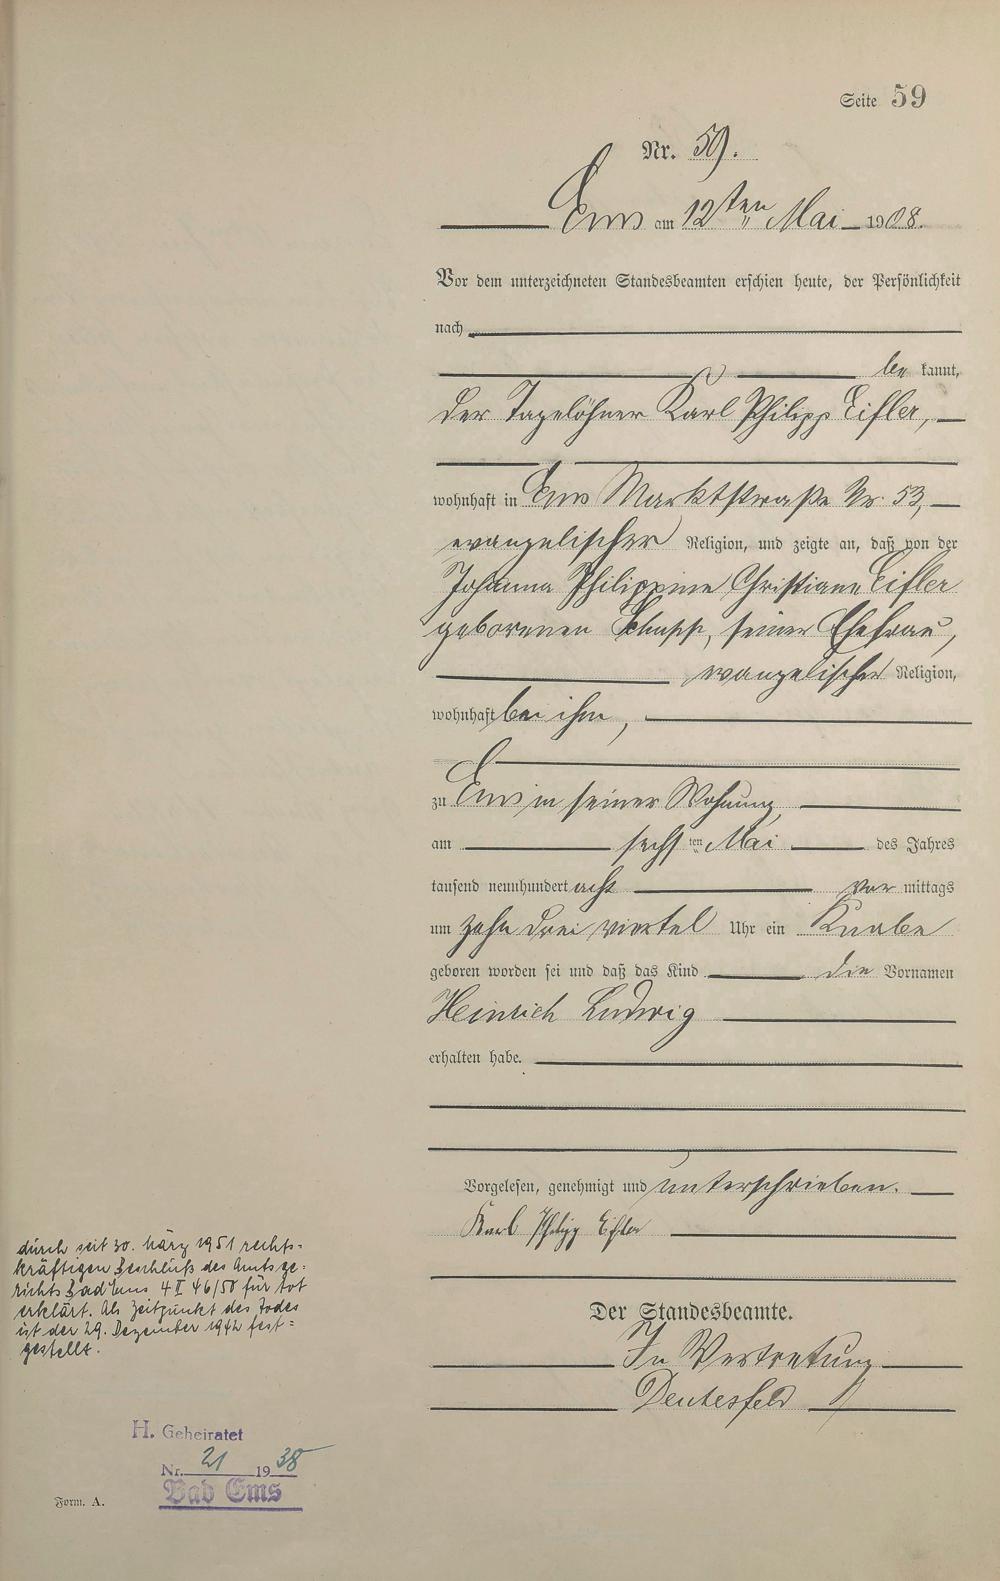 Seite 59
Nr. 59.
Ems am 12ten Mai 1908.
Vor dem unterzeichneten Standesbeamten erschien heute, der Persönlichkeit
nach
be kannt,
der Tagelöhner Karl Philipp Eifler,
wohnhaft in Ems Marktstraße Nr. 53,
evangelischer Religion, und zeigte an, daß von der
Johanna Philippine Christiane Eifler
geborenen Schupp, seiner Ehefrau,
evangelischer Religion,
wohnhaft bei ihm,
zu Ems in seiner Wohnung,
am sechsten Mai des Jahres
tausend neunhundert acht vor mittags
um zehn drei viertel Uhr ein Knabe
geboren worden sei und daß das Kind die Vornamen
Heinrich Ludwig
erhalten habe.
Vorgelesen, genehmigt und unterschrieben.
Karl Philipp Eifler
Der Standesbeamte.
In Vertretung
durch seit 30. März 1951 rechts-
kräftigen Beschluß des Amtsge-
richts Bad Ems 4 II 46/50 für tot
erklärt. Als Zeitpunkt des Todes
ist der 29. Dezember 1942 fest-
gestellt.
H. Geheiratet
Nr. 21 1938
Bad Ems
Form. A.